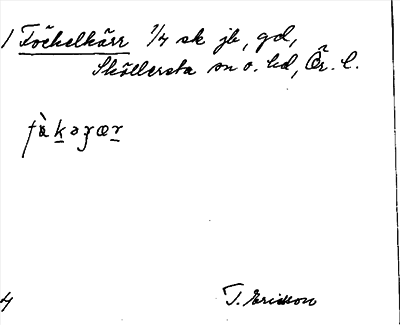 1 Föckelkärr 1/4 sk jb, gd,
Sköllersta sn o. hd, Ör. l.
T. Ericsson
4